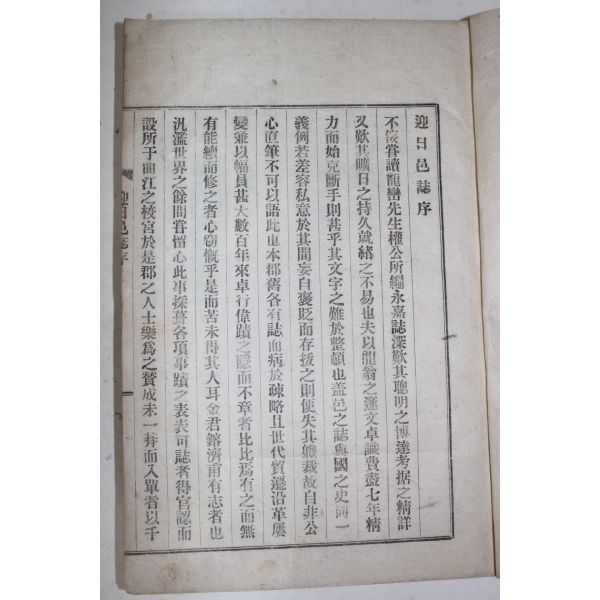 迎日邑誌序
不佞嘗讀龍巒先生權公所編永嘉誌深歎其聰明之博達考据之精詳
又歎其曠日之持久就緖之不易也夫以龍翁之邃文卓識費盡七年精
力而始克斷手則甚乎其文字之難於整頓也盖邑之誌與國之史同一
義例若差容私意於其間妄自褒貶而存拔之則便失其軆裁故自非公
心直筆不可以語此也本郡舊各有誌而病於疎略且世代貿遷沿革屢
變兼以幅員甚大數百年來卓行偉蹟之隱而不章者比比焉有之而無
有能續而修之者心竊慨乎是而苦未得其人耳金君鎔濟甫有志者也
汎濫世界之餘間嘗留心此事採葺各項事蹟之表表可誌者得官認而
設所于曲江之校宮於是郡之人士樂爲之贊成未一朞而入單者以千
迎日邑誌序